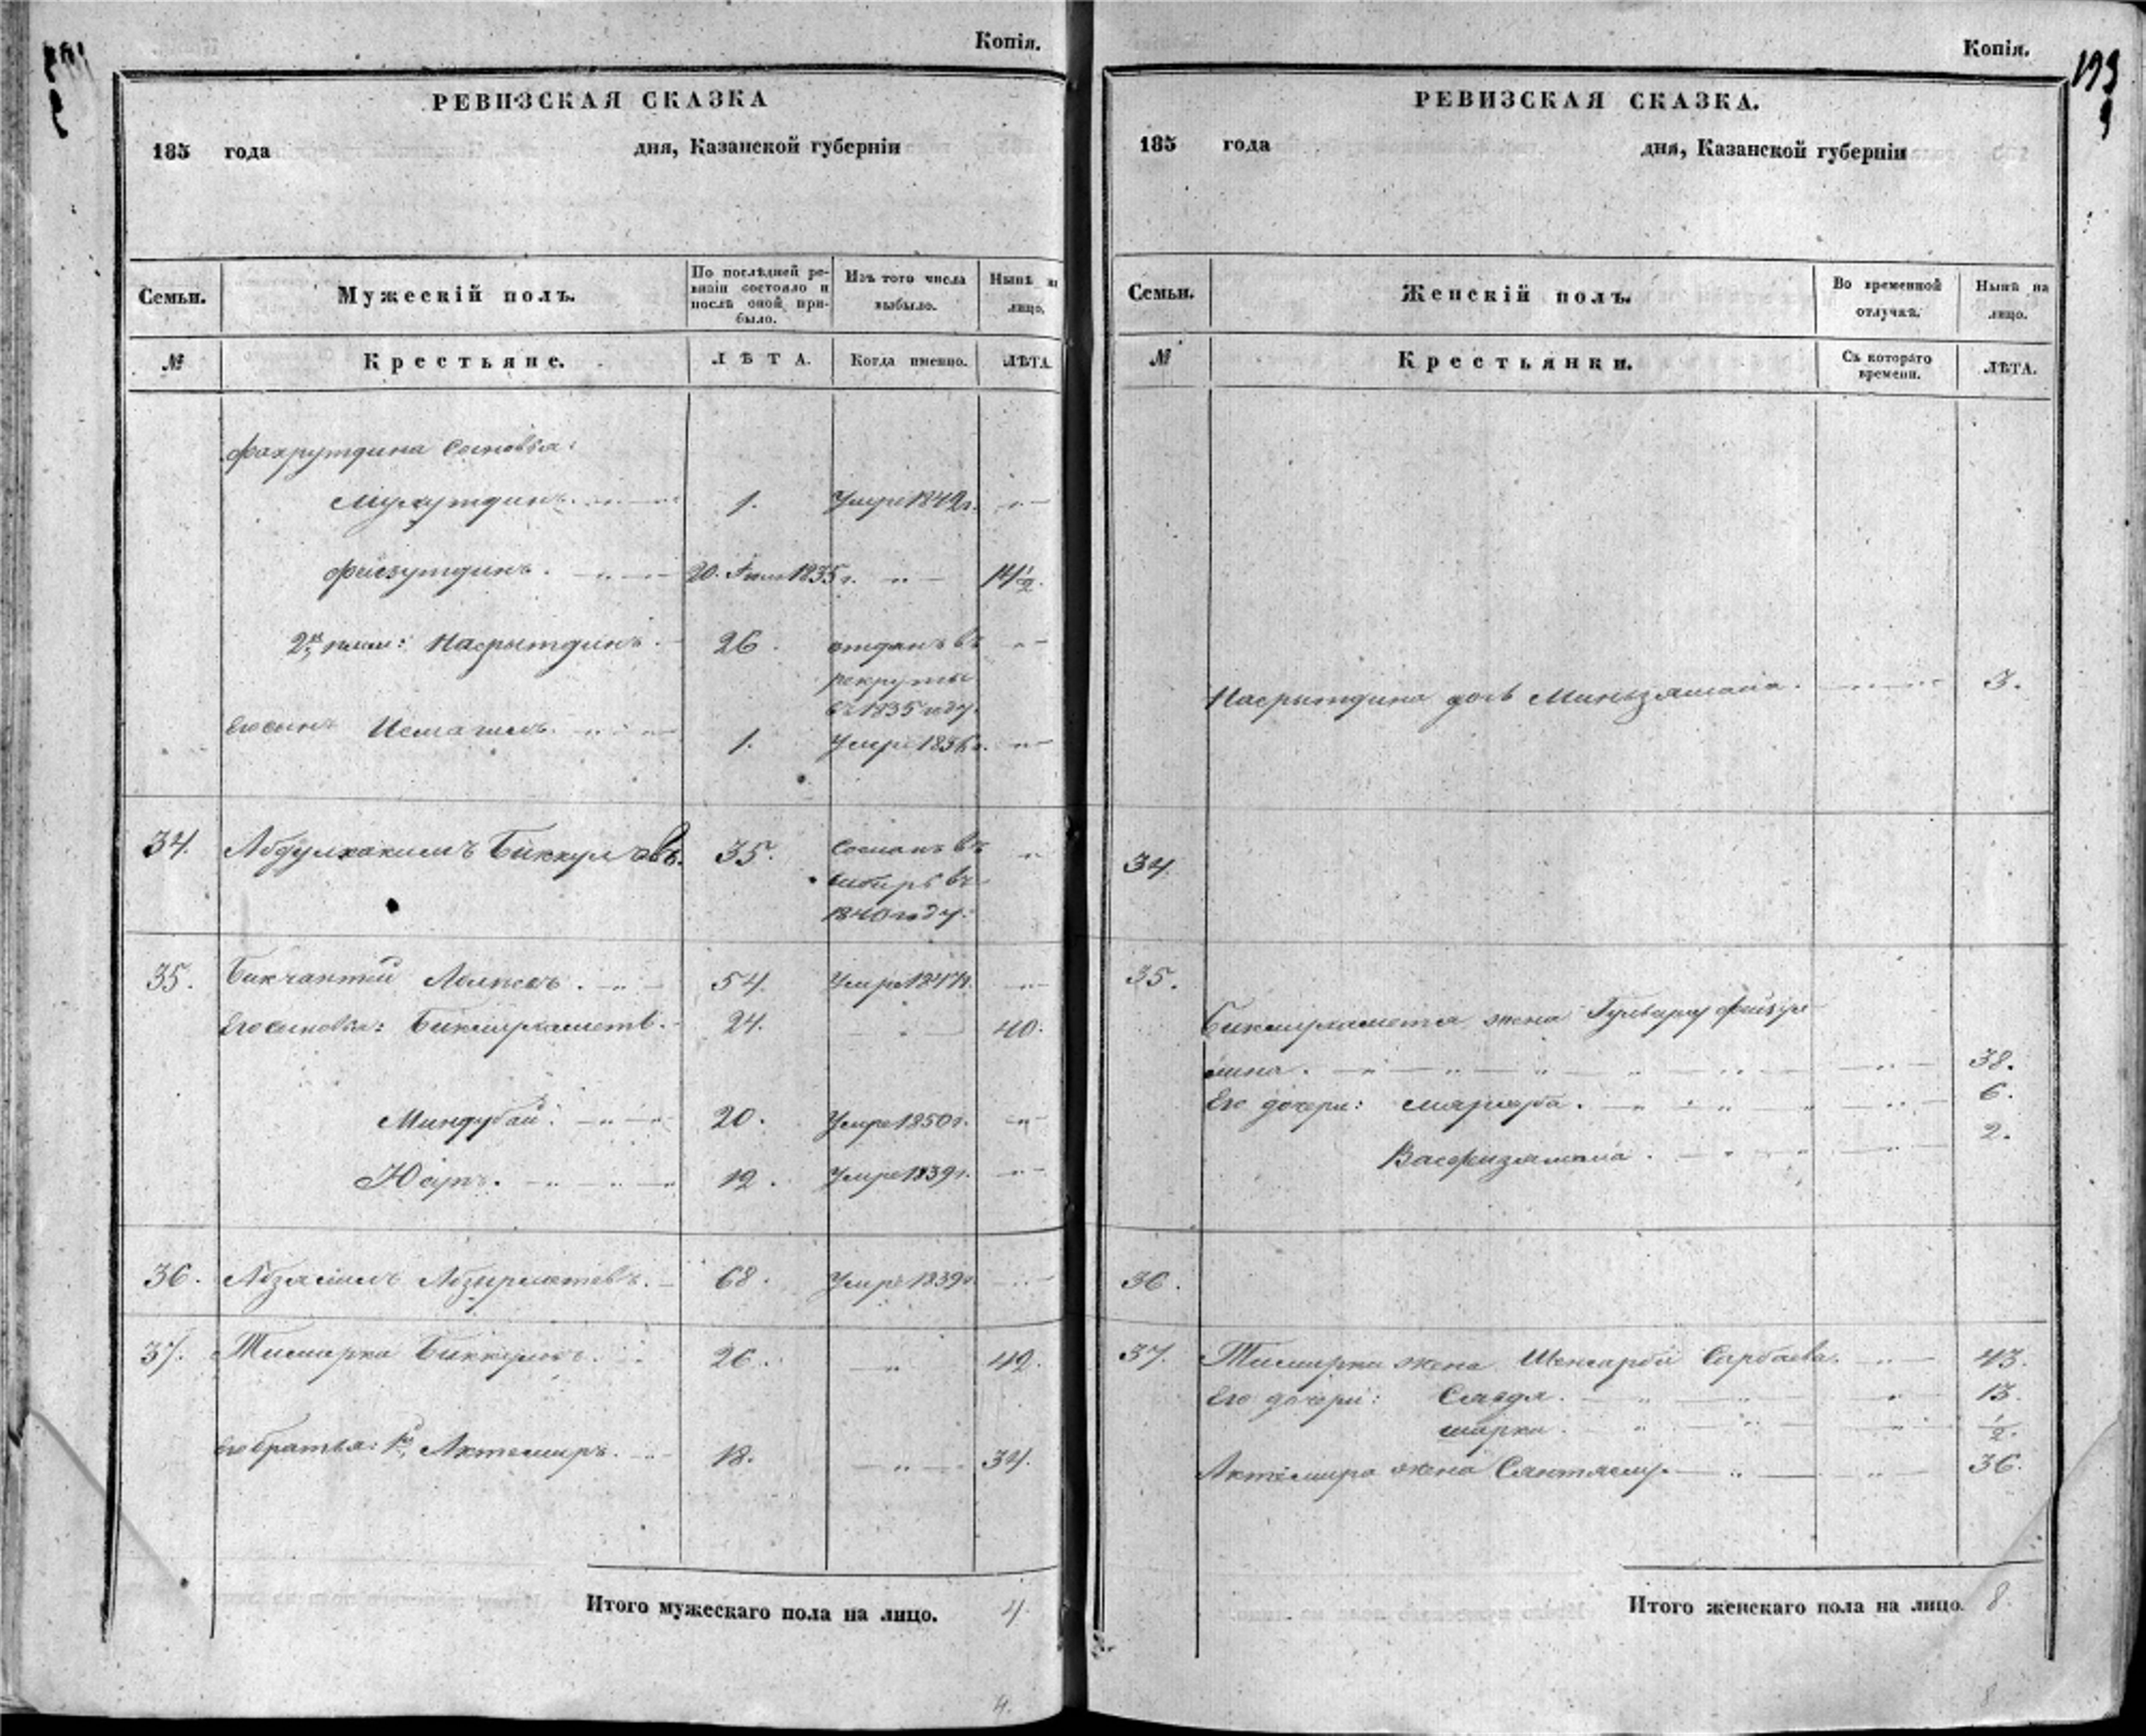 Копія.
РЕВИЗСКАЯ СКАЗКА
185 года дня, Казанской губерніи
Семьи. Мужескій полъ. По послѣдней ревизіи состояло и послѣ оной прибыло. Изъ того числа выбыло. Нынѣ на лицо.
№ Крестьяне. ЛѢТА. Когда именно. ЛѢТА.
Фахрутдина Сыновья:
Мухутдинъ 1. Умре 1842 г. "
Фейзутдинъ. 20. 1835 г. " 14 1/2.
2й плем: Насрытдинъ. 26. отданъ въ "
рекруты
въ 1835 году.
Его сынъ Исмагилъ 1. Умре 1836 г. "
34. Абдулхакимъ Биккуловъ. 35. Сосланъ въ "
Сибирь въ
1840 году.
35. Бикчантей 54. Умре 1847 г. "
Его сыновья: Бикмухаметъ. 24. " 40.
Миндубай. 20. Умре 1850 г. "
Юсупъ. 12. Умре 1839 г. "
36. Абзялилъ 68. Умре 1839 г. "
37. Тимирка Биккуловъ. 26. " 42.
Его братья: 1й, Актемиръ. 18. " 34.
Итого мужескаго пола на лицо. 4
4.
Копія.
199
РЕВИЗСКАЯ СКАЗКА.
185 года дня, Казанской губерніи
Семьи. Женскій полъ. Во временной отлучкѣ. Нынѣ на лицо.
№ Крестьянки. Съ котораго времени. ЛѢТА.
Насрытдина дочь Миньзямала. " 3.
34.
35.
Бикмухамета жена Фейзул
лина. " 38.
Его дочери: " 6.
Васфизямала. " 2.
36.
37. Тимирки жена Сарбаева. " 43.
Его дочери: Саядя. " 13.
" 1/2.
Актемира жена " 36.
Итого женскаго пола на лицо. 8.
8